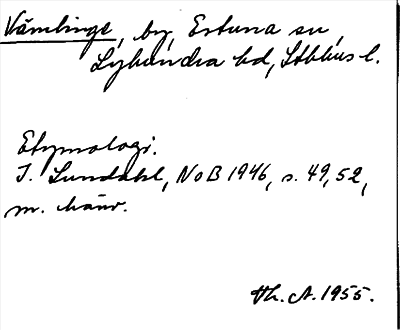 Vämlinge, by, Estuna sn,
Lyhundra hd, Sthlms l.
Etymologi.
I. Lundahl, NoB 1946, s. 49, 52,
m. hänv.
Th. A. 1955.